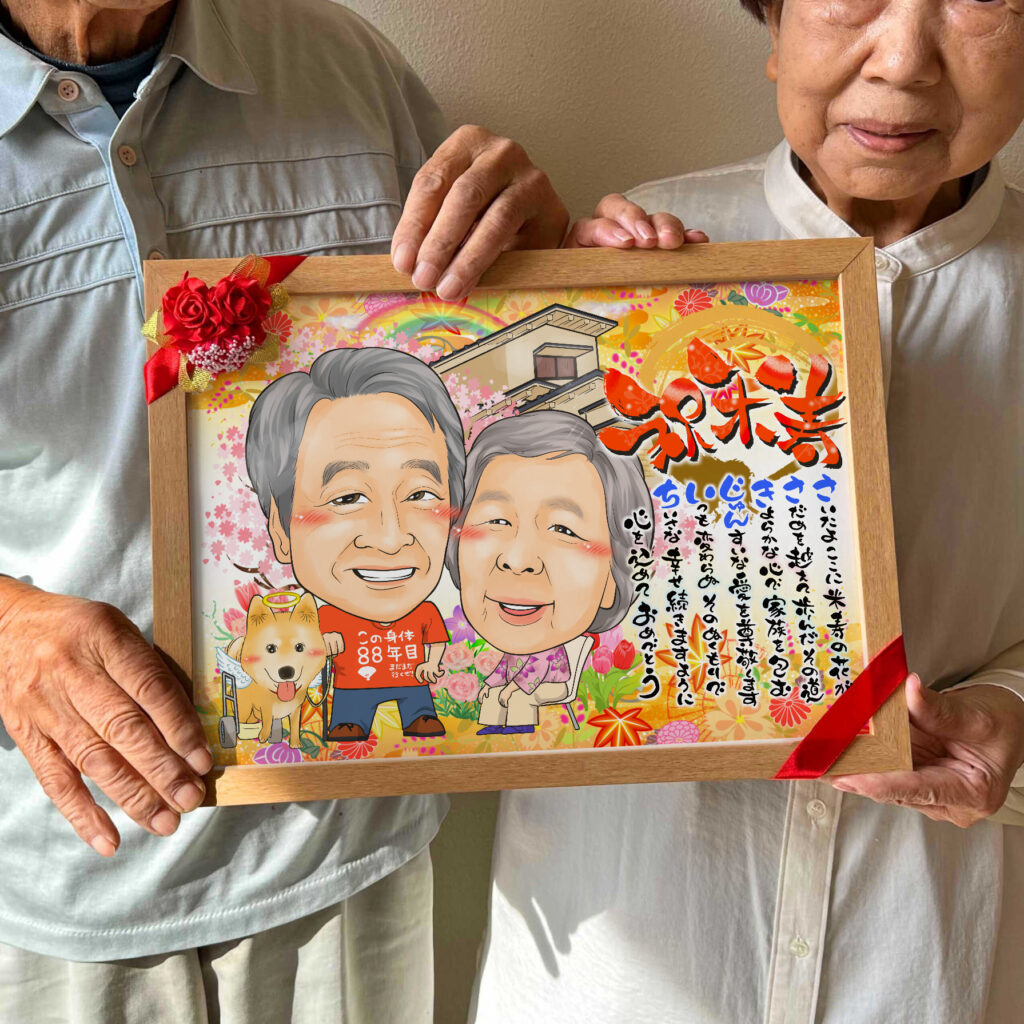 祝米寿
さいたよ ここに 米寿の花が
さだめを越えて 歩んだ その道
きよらかな心で 家族を包む
じゅんすいな愛を尊敬します
いつも変わらぬ そのぬくもりで
ちいさな幸せ続きますように
心を込めて おめでとう
この身体
88年目
まだまだ
行くぜ